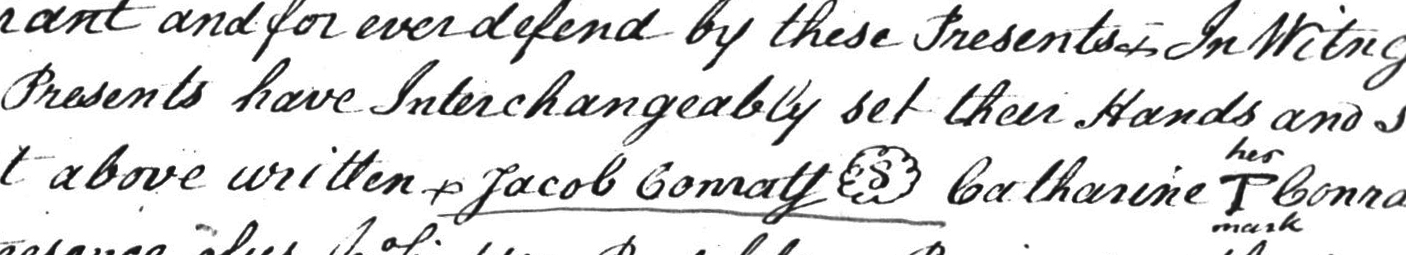 rant and for ever defend by these Presents + In Witne
Presents have Interchangeably set their Hands and s
t above written + Jacob Conratt S Catharine her T mark Conra